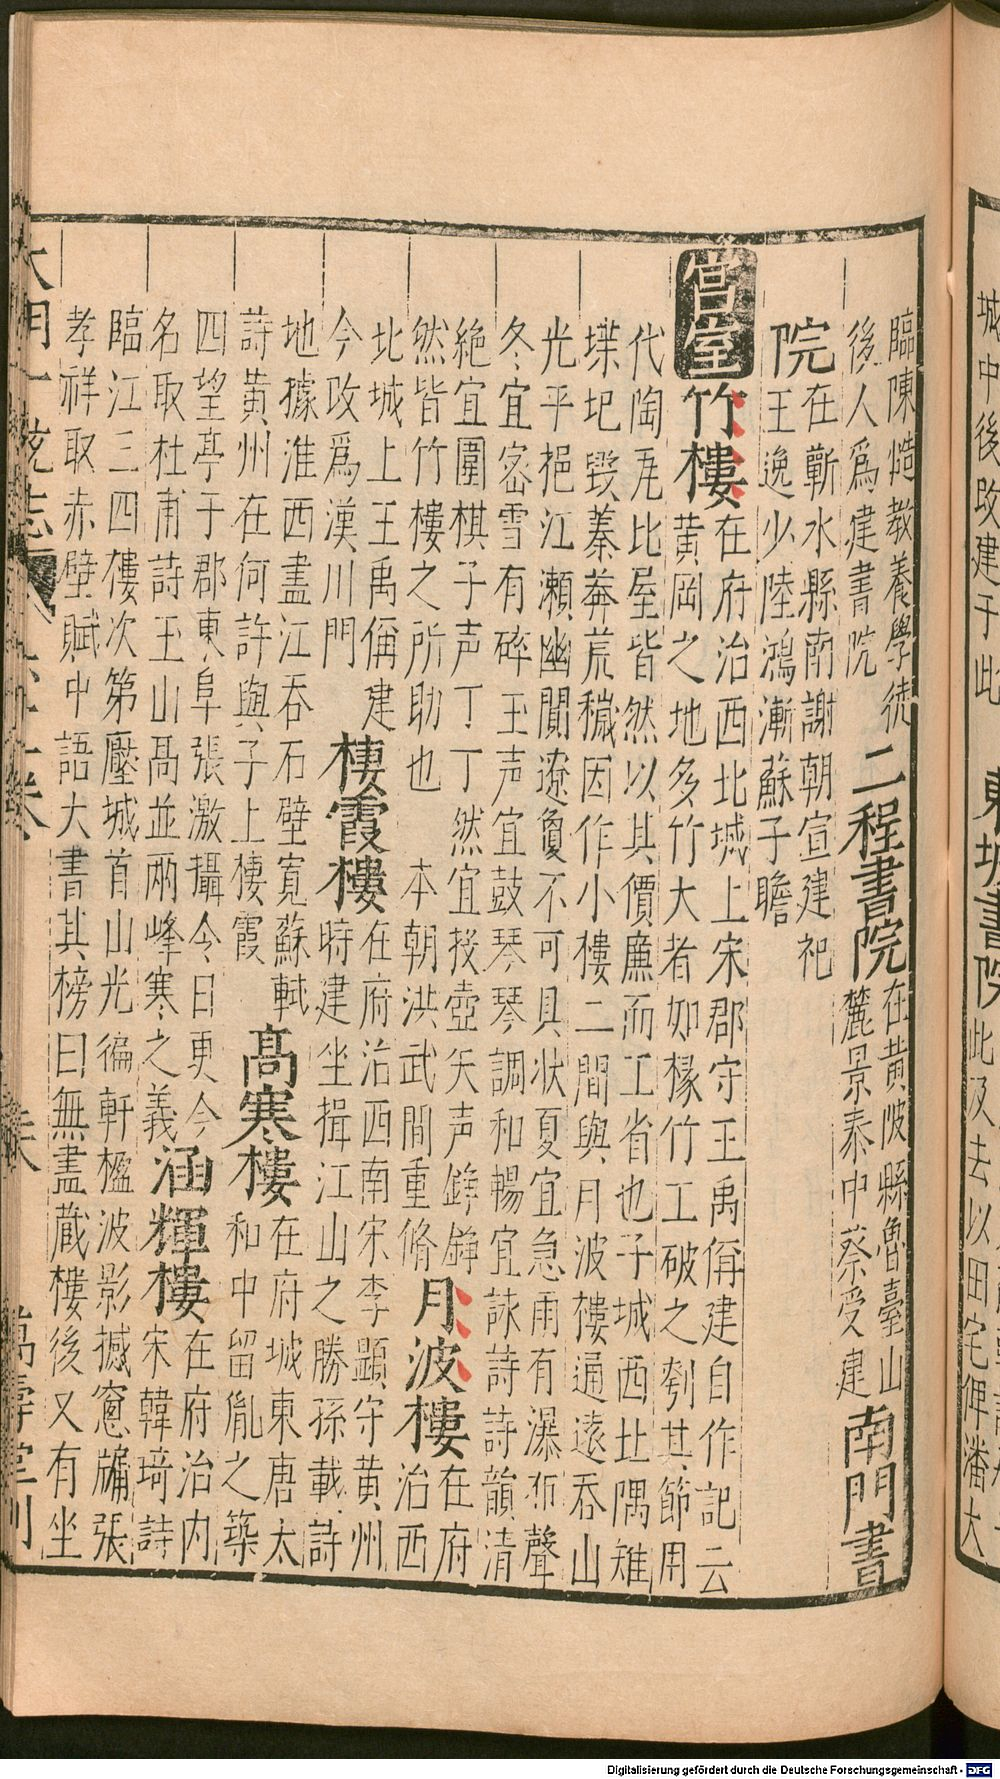 城中後改建于此
東坡書院
此及去以田宅俾潘大
臨陳慥教養學徒
後人爲建書院
二程書院
在黄陂縣魯臺山
麓景泰中蔡受建
南門書
院
在蘄水縣南謝朝宣建祀
王逸少陸鴻漸蘇子瞻
宮室
竹樓
在府治西北城上宋郡守王禹偁建自作記云
黄岡之地多竹大者如椽竹工破之刳其節用
代陶瓦比屋皆然以其價廉而工省也子城西北隅雉
堞圯毁蓁莽荒穢因作小樓二間與月波樓通遠吞山
光平挹江瀬幽闃遼敻不可具状夏宜急雨有瀑布聲
冬宜密雪有碎玉声宜鼓琴琴調和暢宜詠詩詩韻清
絶宜圍棋子声丁丁然宜投壺矢声錚錚
然皆竹樓之所助也 本朝洪武間重脩
月波樓
在府
治西
北城上王禹偁建
今改爲漢川門
棲霞樓
在府治西南宋李顯守黄州
時建坐揖江山之勝孫載詩
地據淮西盡江吞石壁寬蘇軾
詩黄州在何許與子上棲霞
高寒樓
在府城東唐太
和中留胤之築
四望亭于郡東阜張激攝今日更今
名取杜甫詩玉山高並兩峰寒之義
涵輝樓
在府治内
宋韓琦詩
臨江三四樓次第壓城首山光徧軒楹波影撼窓牖張
孝祥取赤壁賦中語大書其榜曰無盡蔵樓後又有坐
大明一統志
萬壽堂刊
Digitalisierung gefördert durch die Deutsche Forschungsgemeinschaft - DFG